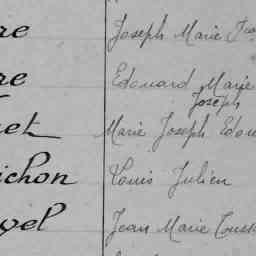 re Joseph Marie
re Edouard Marie
Joseph
et Marie Joseph Edou
ichon Louis Julien
vel Jean Marie